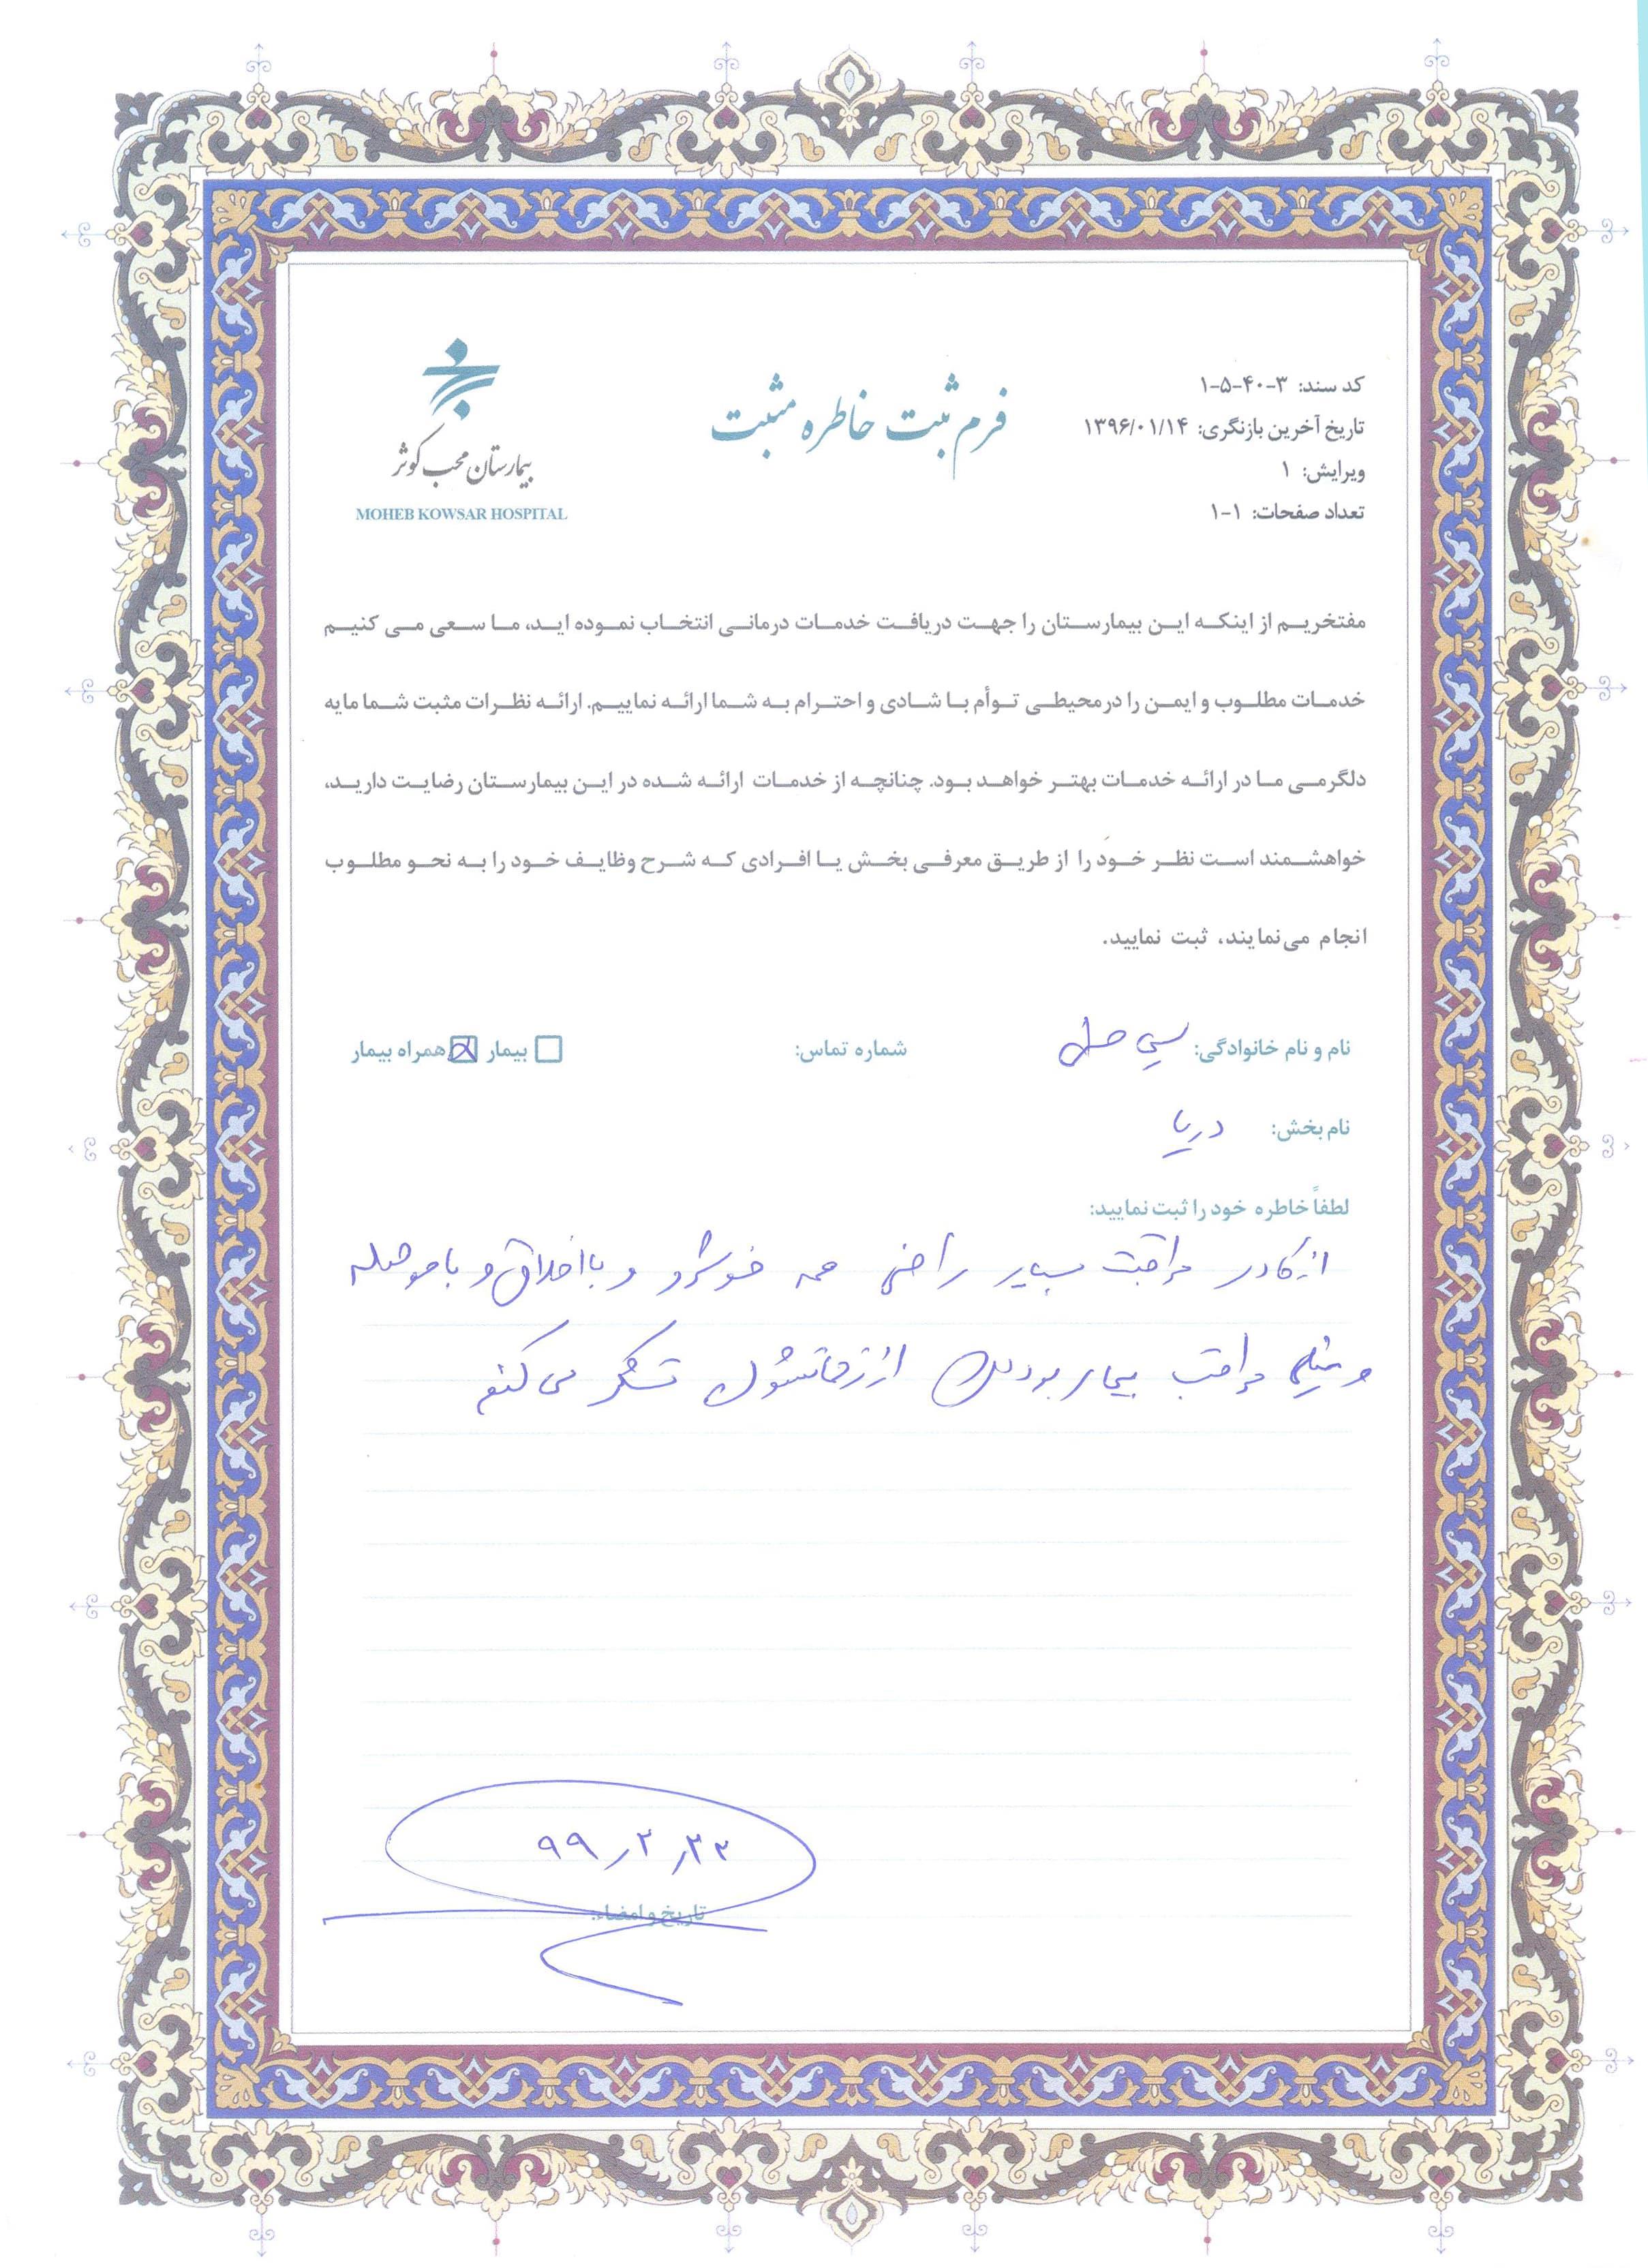 کد سند: ۳-۴۰-۵-۱
تاریخ آخرین بازنگری: ۱۳۹۶/۰۱/۱۴
ویرایش: ۱
تعداد صفحات: ۱-۱
فرم ثبت خاطره مثبت
بیمارستان محب کوثر
MOHEB KOWSAR HOSPITAL
مفتخریم از اینکه این بیمارستان را جهت دریافت خدمات درمانی انتخاب نموده اید، ما سعی می کنیم
خدمات مطلوب و ایمن را درمحیطی توأم با شادی و احترام به شما ارائه نماییم. ارائه نظرات مثبت شما مایه
دلگرمی ما در ارائه خدمات بهتر خواهد بود. چنانچه از خدمات ارائه شده در این بیمارستان رضایت دارید،
خواهشمند است نظر خود را از طریق معرفی بخش یا افرادی که شرح وظایف خود را به نحو مطلوب
انجام می‌نمایند، ثبت نمایید.
نام و نام خانوادگی: شماره تماس: بیمار همراه بیمار
نام بخش: دریا
لطفاً خاطره خود را ثبت نمایید:
از کادر مراقبت بسیار راضی همه خوشرو و بااخلاق و باحوصله
و خیلی مراقب بیمار بودن از زحماتشون تشکر می کنم
۹۹/۲/۲۲
تاریخ و امضاء: